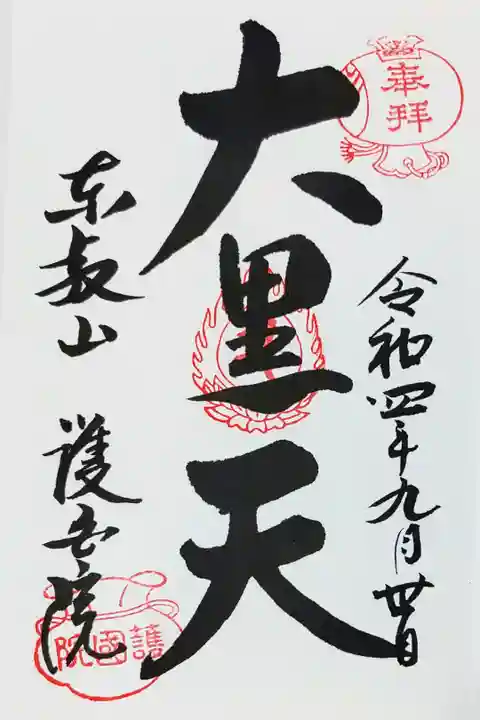 奉拝
令和四年九月卅日
大黒天
東叡山 護国院
護國院